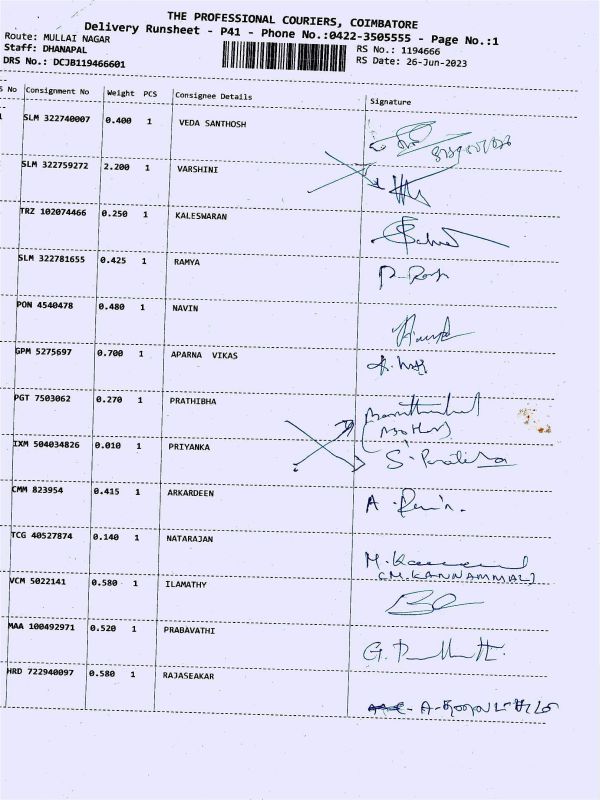 THE PROFESSIONAL COURIERS, COIMBATORE
Delivery Runsheet - P41 - Phone No.:0422-3505555 - Page No.:1
Route: MULLAI NAGAR
Staff: DHANAPAL
DRS No.: DCJB119466601
RS No.: 1194666
RS Date: 26-Jun-2023
S No Consignment No Weight PCS Consignee Details Signature
1 SLM 322740007 0.400 1 VEDA SANTHOSH
SLM 322759272 2.200 1 VARSHINI
TRZ 102074466 0.250 1 KALESWARAN
SLM 322781655 0.425 1 RAMYA
PON 4540478 0.480 1 NAVIN
GPM 5275697 0.700 1 APARNA VIKAS
PGT 7503062 0.270 1 PRATHIBHA
IXM 504034826 0.010 1 PRIYANKA
CMM 823954 0.415 1 ARKARDEEN
TCG 40527874 0.140 1 NATARAJAN
(M.KANNAMMAL)
VCM 5022141 0.580 1 ILAMATHY
MAA 100492971 0.520 1 PRABAVATHI
HRD 722940097 0.580 1 RAJASEAKAR